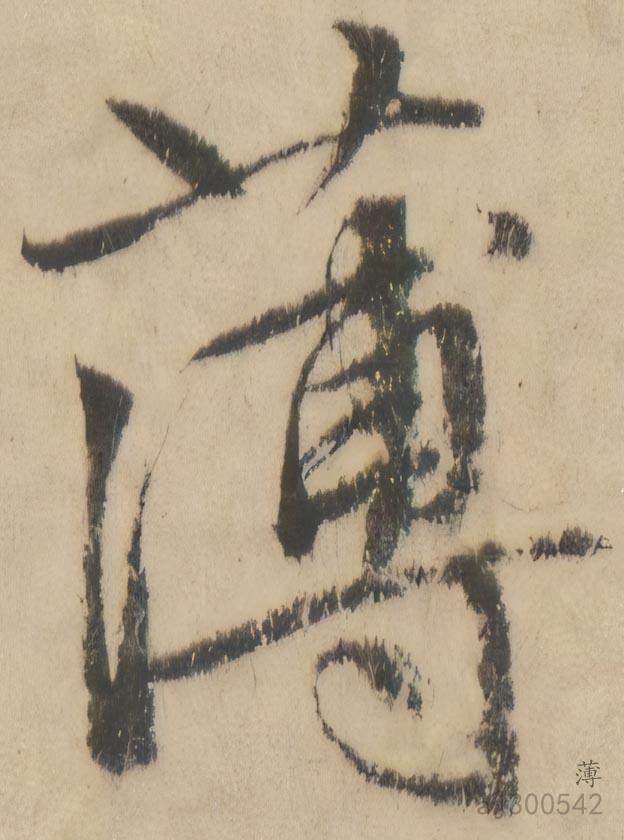 薄
薄
ag300542